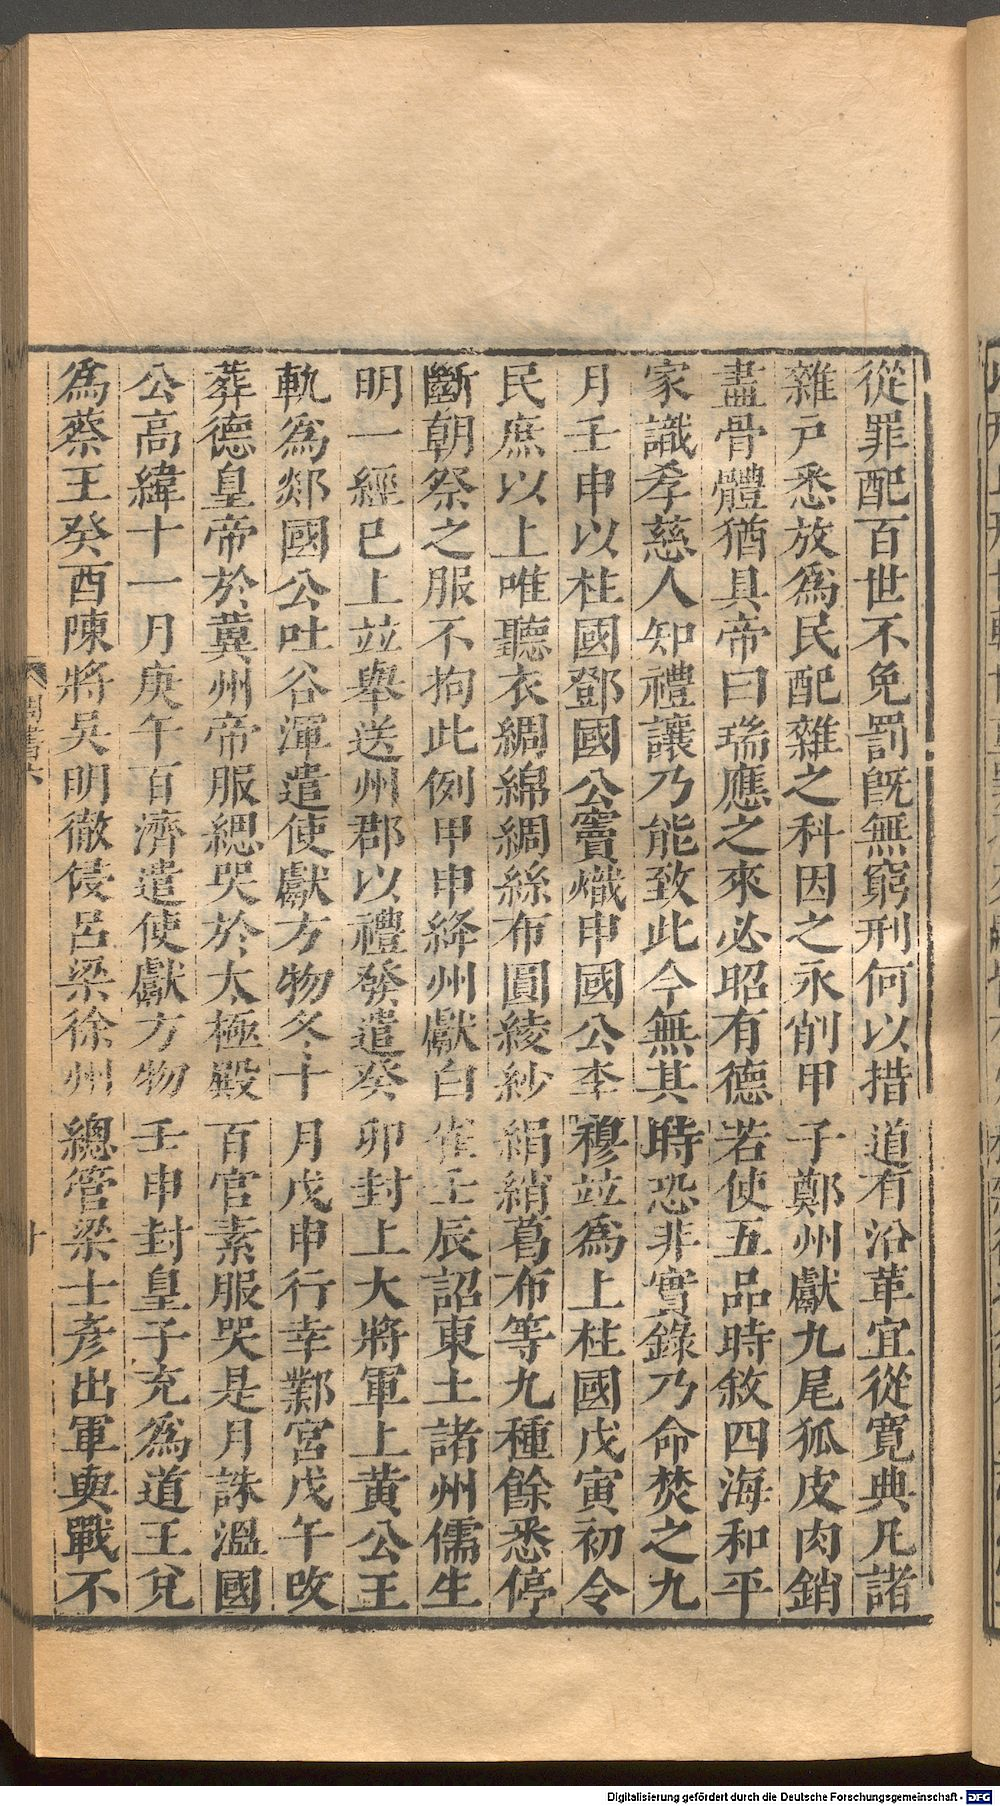 從罪配百世不免罰旣無窮刑何以措道有沿革宜從寛典凡諸
雜戸悉放爲民配雜之科因之永削甲子鄭州獻九尾狐皮肉銷
盡骨體猶具帝曰瑞應之來必昭有德若使五品時敘四海和平
家識孝慈人知禮讓乃能致此今無其時恐非實錄乃命焚之九
月壬申以柱國鄧國公竇熾申國公李穆竝爲上柱國戊寅初令
民庶以上唯聽衣綢綿綢絲布圓綾紗絹綃葛布等九種餘悉停
斷朝祭之服不拘此例甲申絳州獻白雀壬辰詔東土諸州儒生
明一經已上竝舉送州郡以禮發遣癸卯封上大將軍上黄公王
軌爲郯國公吐谷渾遣使獻方物冬十月戊申行幸鄴宮戊午攺
葬德皇帝於冀州帝服緦哭於太極殿百官素服哭是月誅溫國
公高緯十一月庚午百濟遣使獻方物壬申封皇子充爲道王兌
爲蔡王癸酉陳將吳明徹侵呂梁徐州總管梁士彥出軍與戰不
周書六
Digitalisierung gefördert durch die Deutsche Forschungsgemeinschaft - DFG